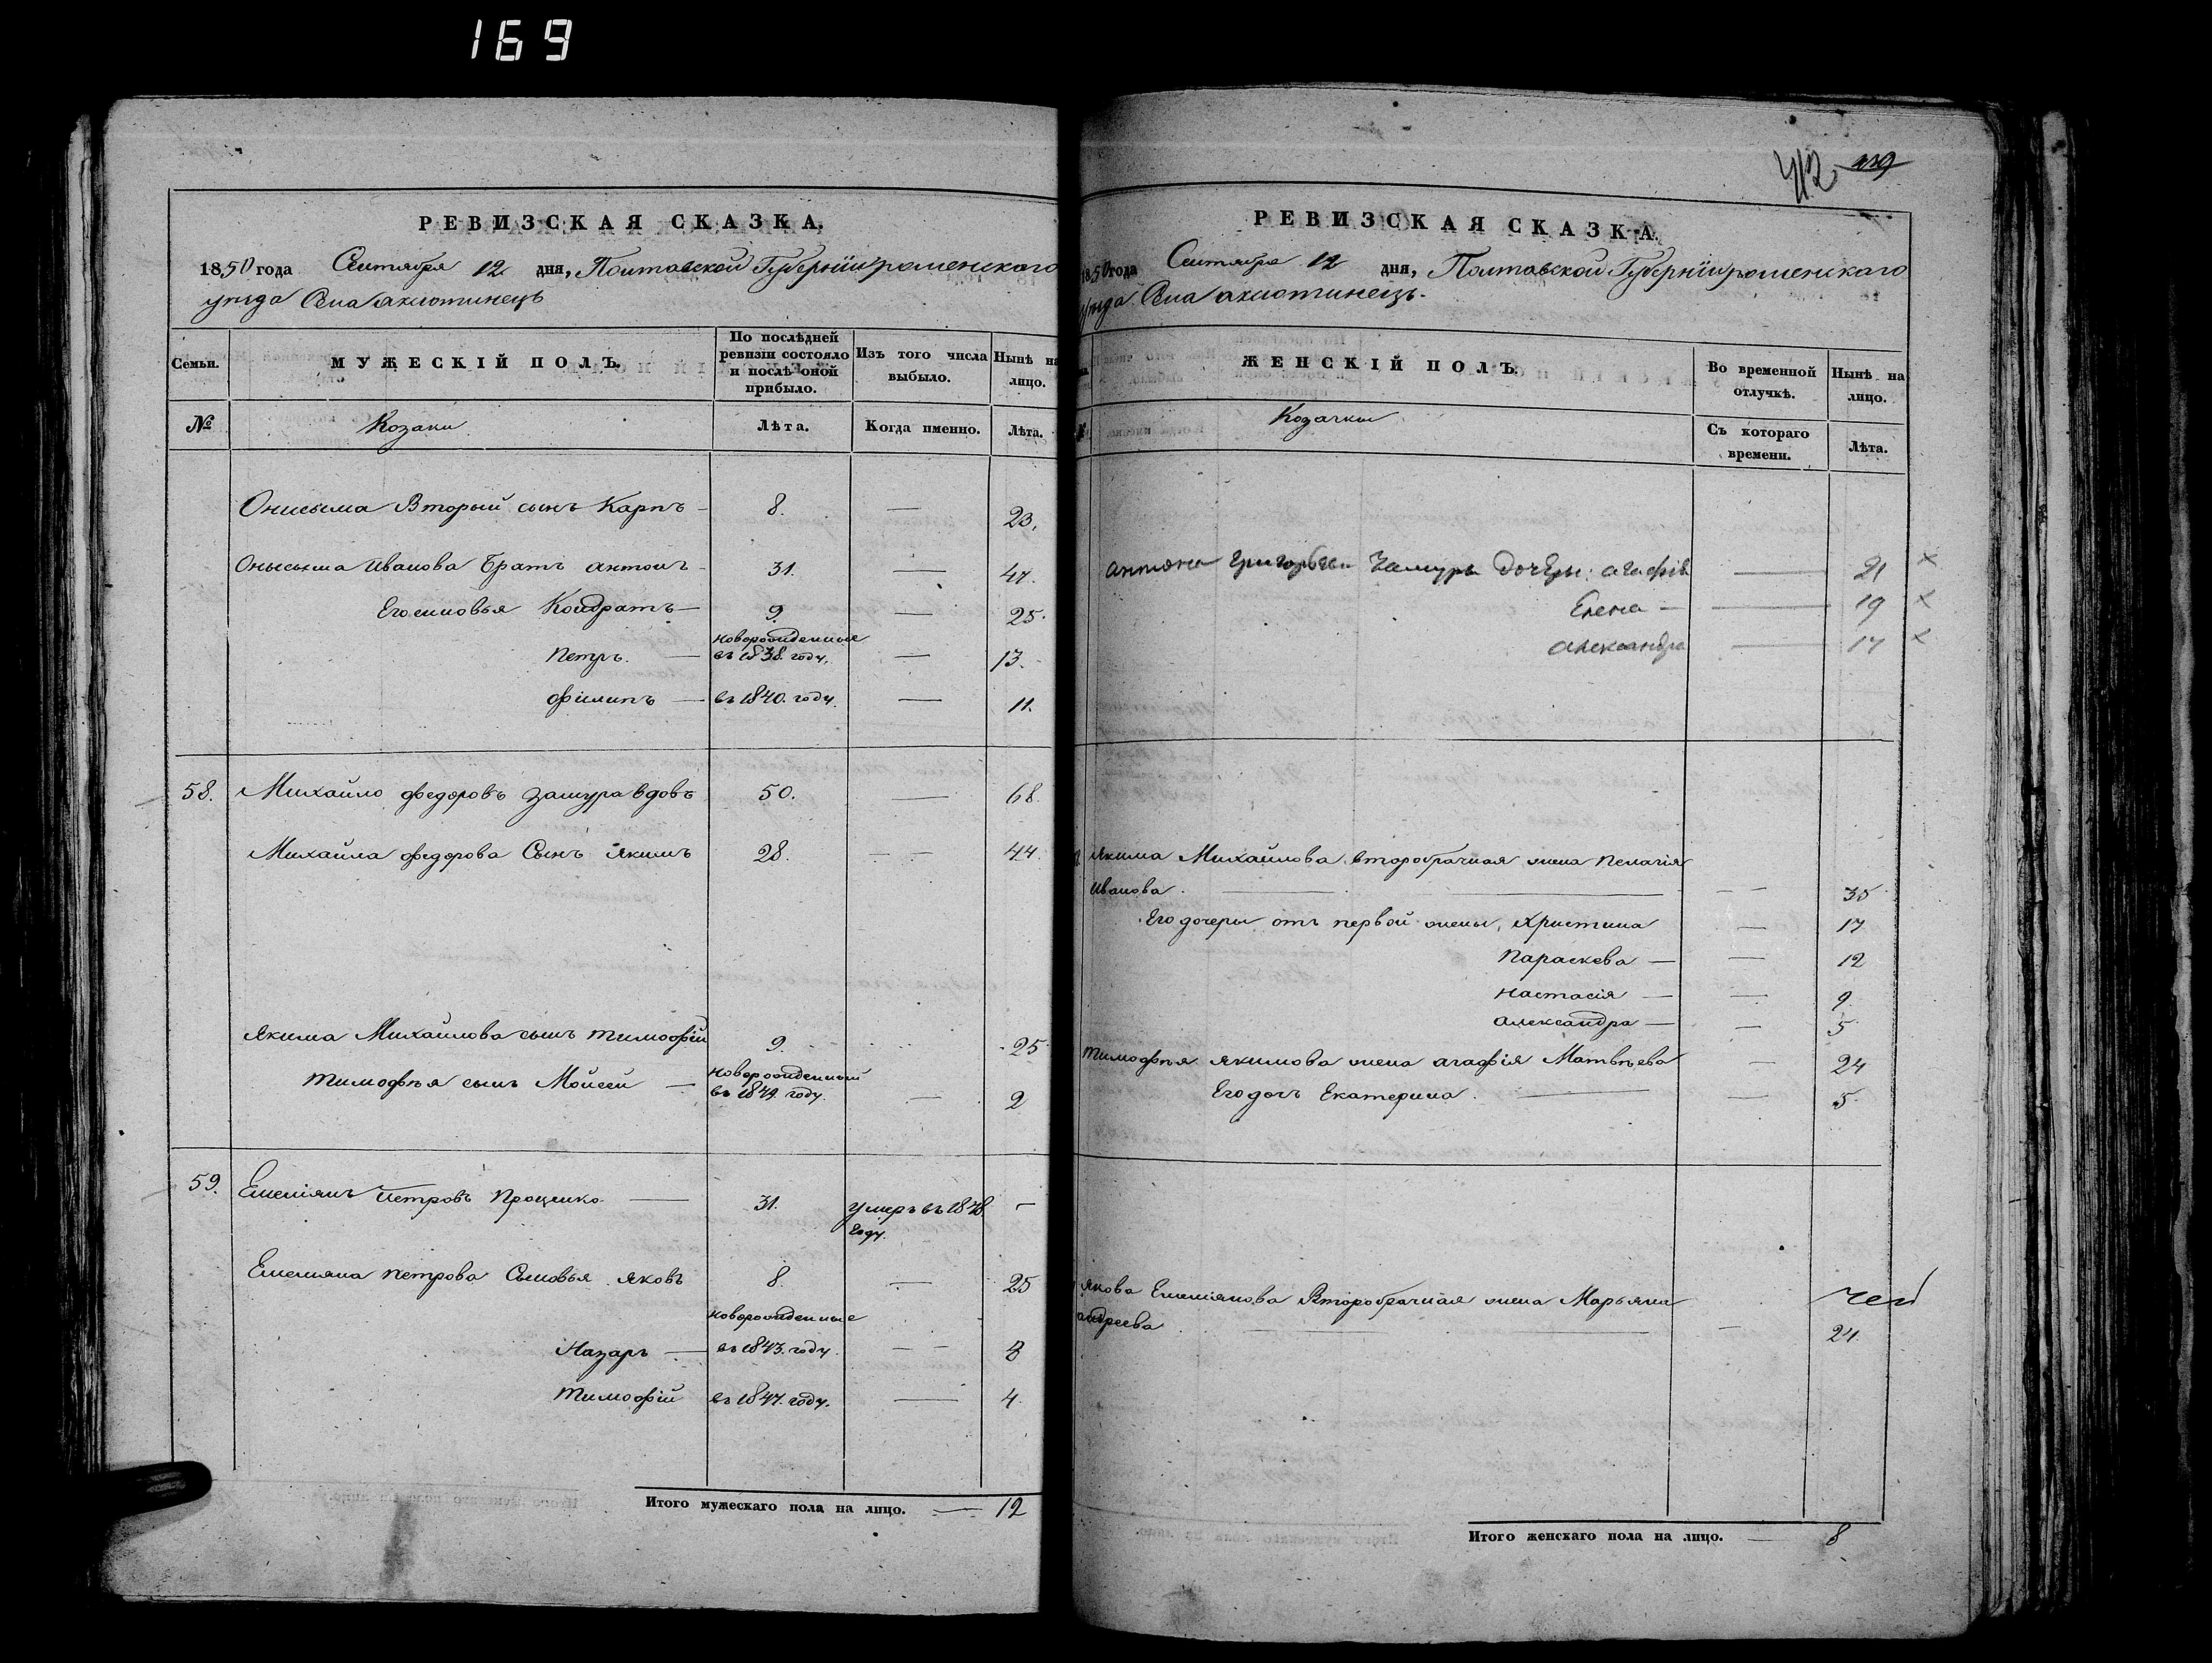 169
РЕВИЗСКАЯ СКАЗКА.
1850 года Сентября 12 дня, Полтавской Губернїи роменского
уѣзда Села Смѣлого
Семьи.
МУЖЕСКІЙ ПОЛЪ.
По послѣдней ревизіи состояло и послѣ оной прибыло.
Изъ того числа выбыло.
Нынѣ на лицо.
№
Козаки
Лѣта.
Когда именно.
Лѣта.
Онисыма Вторый сынъ Карпъ — 8. — 23.
Онысьма Иванова Братъ антонъ — 31. — 47.
Его сыновья Кондратъ — 9. — 25.
новорожденные
Петръ. — въ 1838. году. — 13.
филипъ — въ 1840. году. — 11.
58. Михайло федоровъ замура вдовъ 50. — 68.
Михайла федорова Сынъ якимъ 28. — 44.
якима Михайлова сынъ тимофій 9. 25
тимофѣя сынъ Мойсей — новорожденный
въ 1849. году. — 2
59. Емеліянъ петровъ Проценко — 31. умеръ въ 1848. —
году.
Емеліяна петрова Сыновья яковъ 8. — 25
новорожденные
Назаръ — въ 1843. году. — 8
тимофій въ 1847. году. — 4
Итого мужескаго пола на лицо. — 12
412 439
РЕВИЗСКАЯ СКАЗКА.
1850 года Сентября 12 дня, Полтавской Губернїи роменскаго
уѣзда Села
ЖЕНСКІЙ ПОЛЪ.
Во временной отлучкѣ.
Нынѣ на лицо.
Козачки
Съ котораго времени.
Лѣта.
антона Григорьева Замуры дочери: агафія — 21 ×
Елена — — 19 ×
александра — 17 ×
якима Михайлова второбрачная жена пелагія
Иванова. — — 35
Его дочеры отъ первой жены, христина — 17
параскева — — 12
настасія — — 9
александра — — 5
тимофѣя якимова жена агафія Матвѣева — 24
Его дочь Екатерина. — — 5
якова Емеліянова Второбрачная жена Марьяна
андреева — — 24
Итого женскаго пола на лицо. — 8